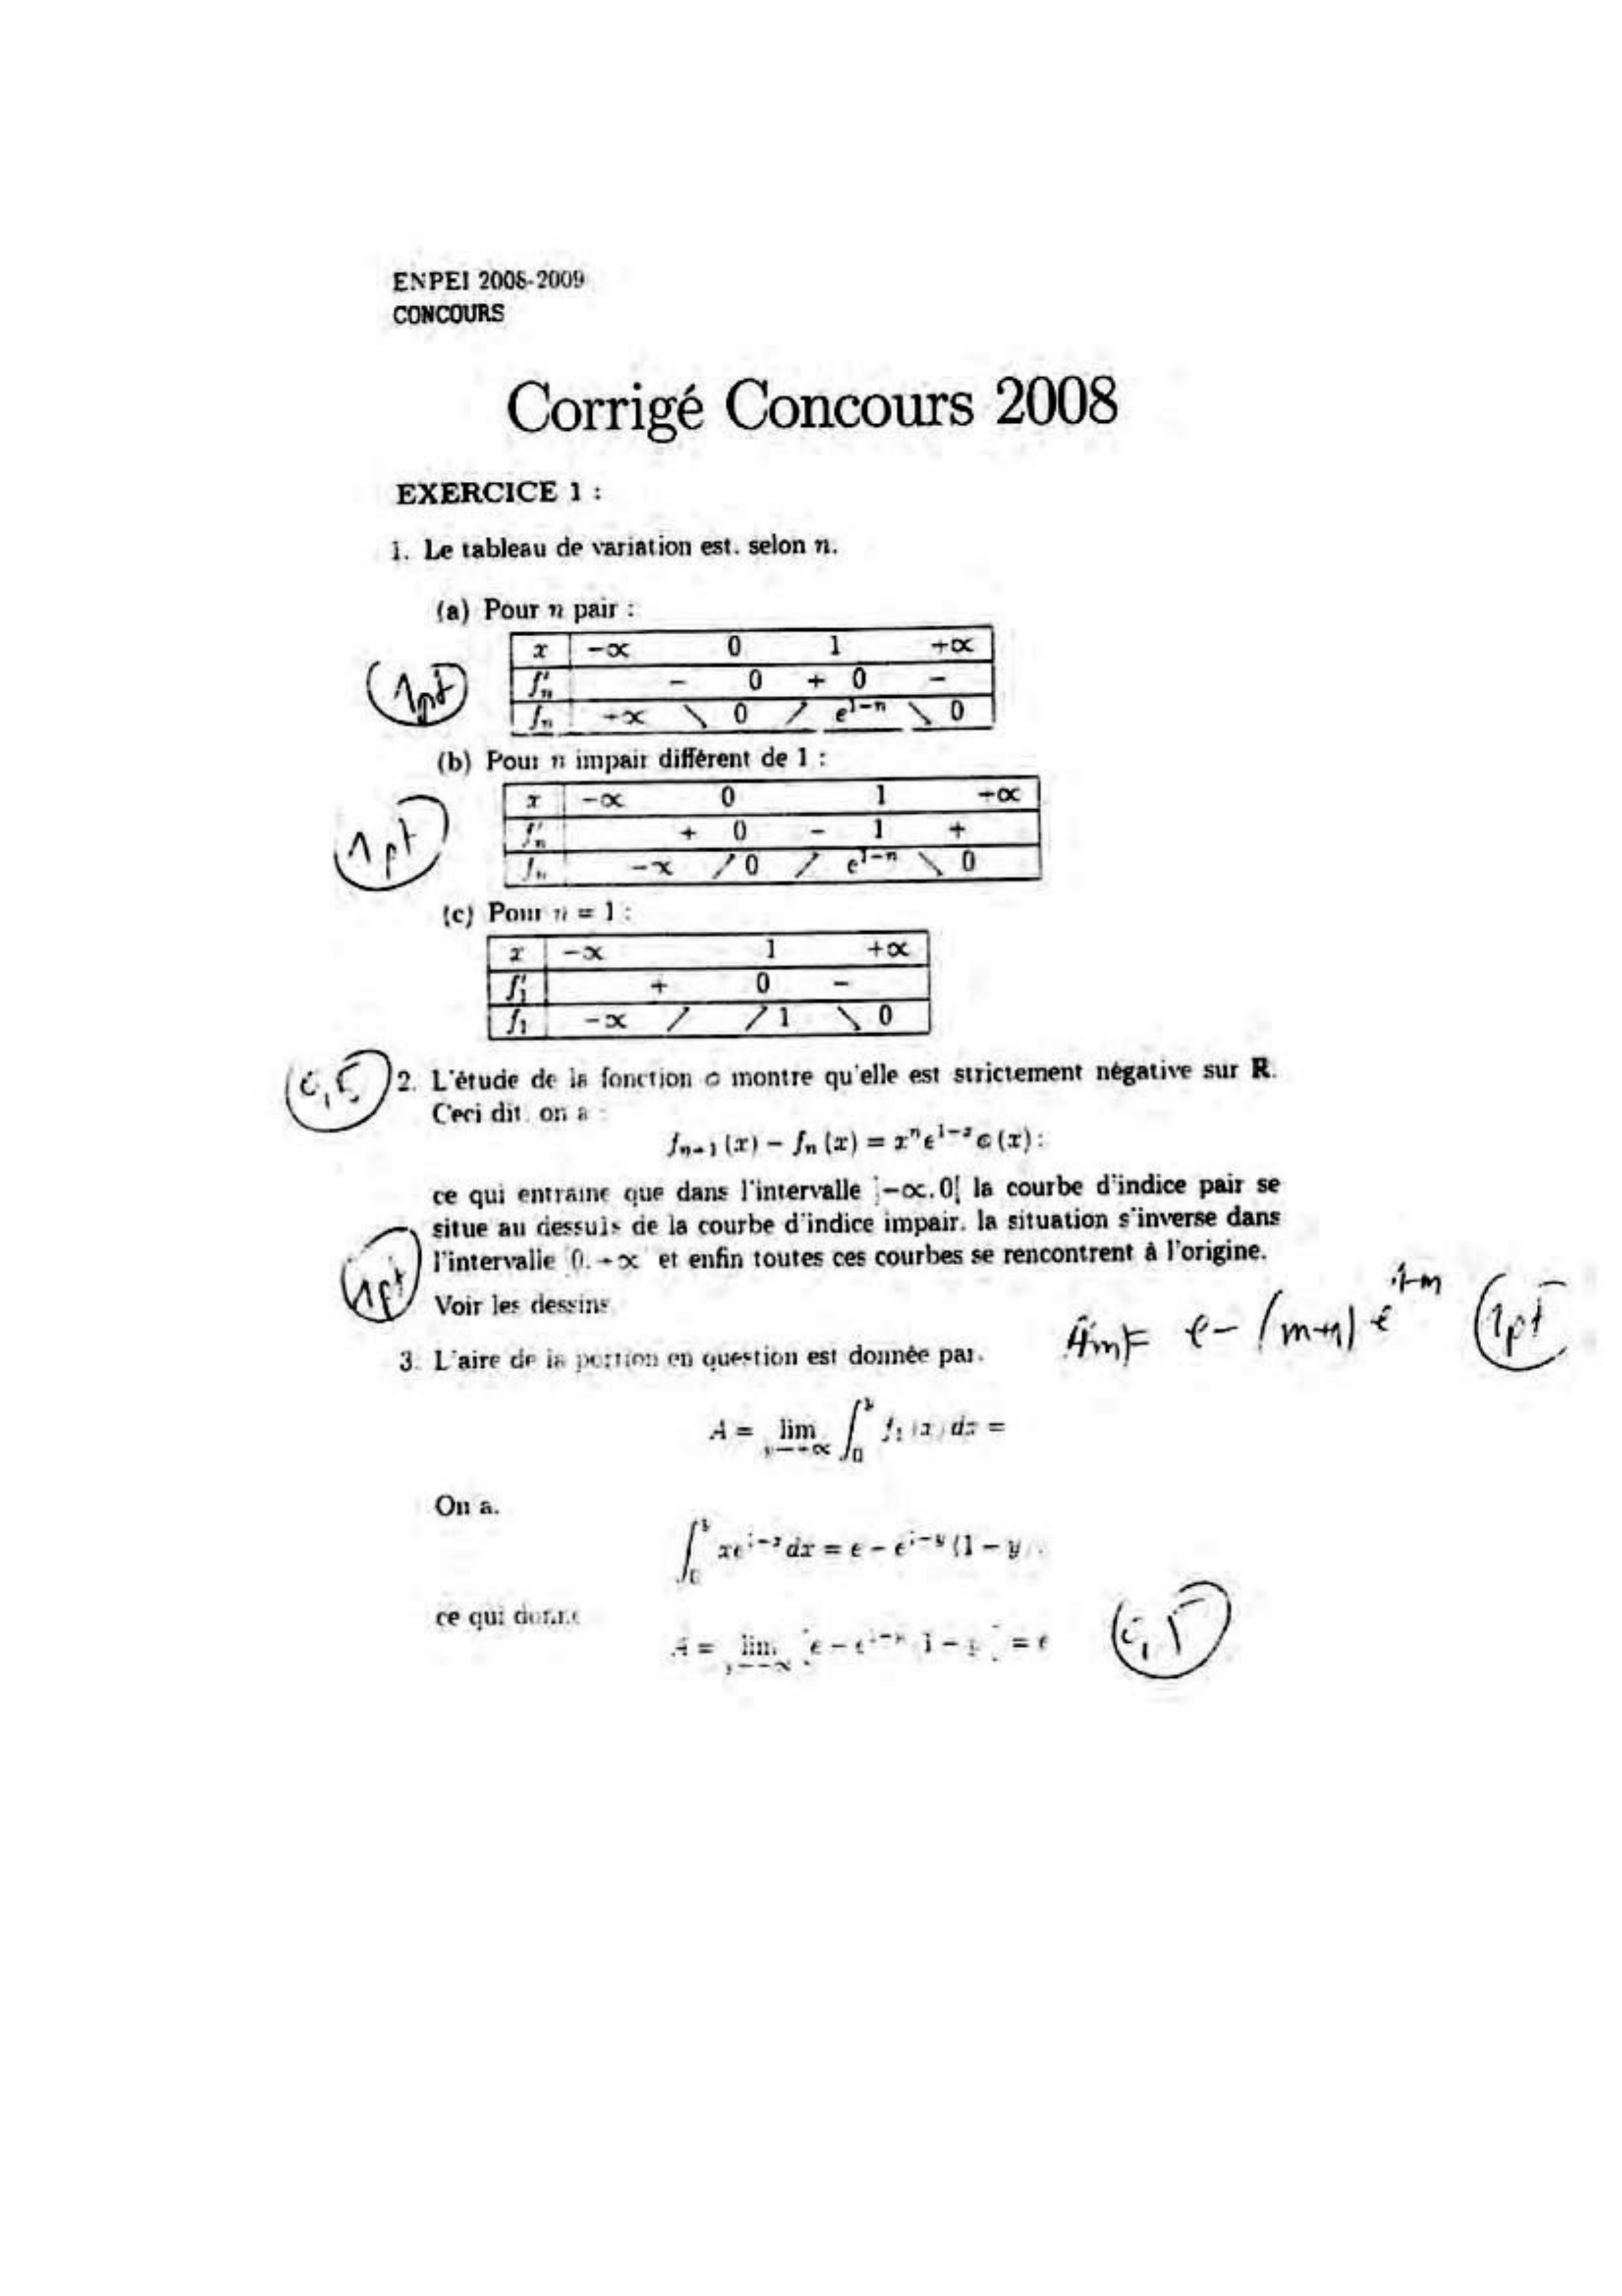 ENPEI 2008-2009
CONCOURS
Corrigé Concours 2008
EXERCICE 1 :
1. Le tableau de variation est. selon n.
(a) Pour n pair :
x −∝ 0 1 +∝
f'n − 0 + 0 −
fn +∝ ↘ 0 ↗ e^{1−n} ↘ 0
1pt
(b) Pour n impair différent de 1 :
x −∝ 0 1 +∝
f'n + 0 − 1 +
fn −∝ ↗ 0 ↗ e^{1−n} ↘ 0
1pt
(c) Pour n = 1 :
x −∝ 1 +∝
f'1 + 0 −
f1 −∝ ↗ ↗ 1 ↘ 0
0,5
2. L'étude de la fonction montre qu'elle est strictement négative sur R.
Ceci dit. on a :
f_{n+1}(x) − f_n(x) = x^n e^{1−x} (x) :
ce qui entraine que dans l'intervalle ]−∝. 0[ la courbe d'indice pair se
situe au dessuis de la courbe d'indice impair. la situation s'inverse dans
l'intervalle 0. +∝ et enfin toutes ces courbes se rencontrent à l'origine.
1pt
Voir les dessins
e − (m+1) e^{1-m} 1pt
3. L'aire de la portion en question est donnée par.
A = lim ∫_0^y f_1(x) dx =
On a.
∫_0^y xe^{1−x} dx = e − e^{1−y} (1 − y
ce qui donne
A = lim e − e^{1−y} 1 − y = e
0,5